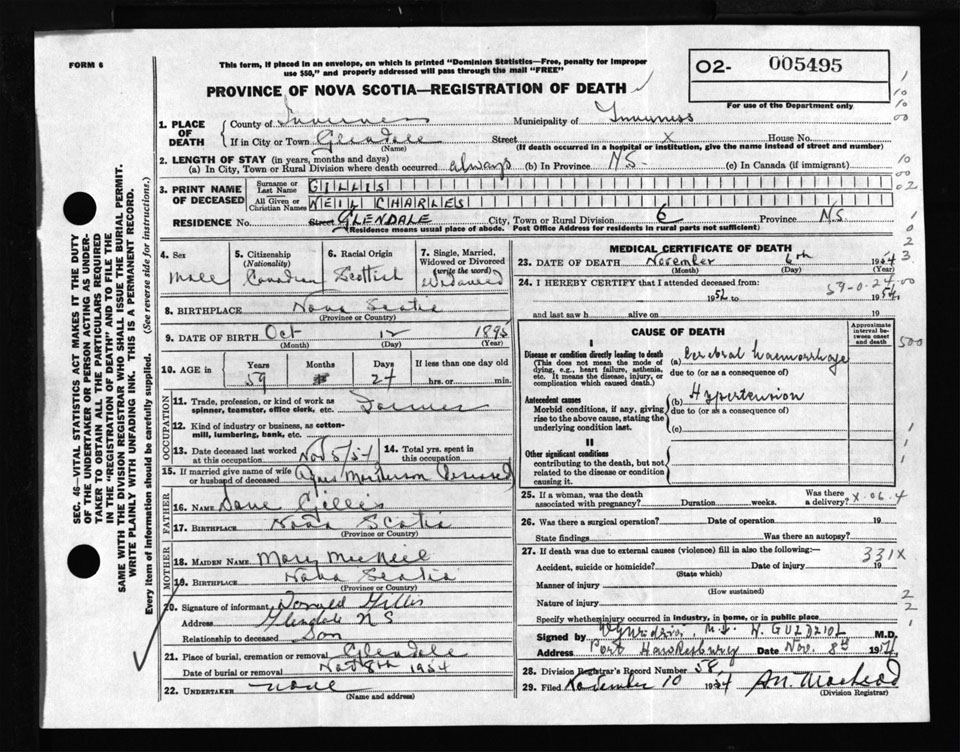 FORM 6
This form, if placed in an envelope, on which is printed "Dominion Statistics—Free, penalty for improper
use $50," and properly addressed will pass through the mail "FREE"
PROVINCE OF NOVA SCOTIA—REGISTRATION OF DEATH
O2- 005495
For use of the Department only
1. PLACE OF DEATH
County of Inverness Municipality of Inverness
If in City or Town Glendale Street x House No.
(Name) (If death occurred in a hospital or institution, give the name instead of street and number)
2. LENGTH OF STAY (in years, months and days)
(a) In City, Town or Rural Division where death occurred always (b) In Province N.S. (c) In Canada (if immigrant)
3. PRINT NAME OF DECEASED
Surname or Last Name GILLIS
All Given or Christian Names NEIL CHARLES
RESIDENCE No. Street GLENDALE City, Town or Rural Division 6 Province N.S.
(Residence means usual place of abode. Post Office Address for residents in rural parts not sufficient)
4. Sex
Male
5. Citizenship (Nationality)
Canadian
6. Racial Origin
Scottish
7. Single, Married, Widowed or Divorced (write the word)
Widowed
8. BIRTHPLACE Nova Scotia
(Province or Country)
9. DATE OF BIRTH Oct 12 1895
(Month) (Day) (Year)
10. AGE in Years 59 Months Days 24 If less than one day old hrs. or min.
OCCUPATION
11. Trade, profession or kind of work as spinner, teamster, office clerk, etc. Farmer
12. Kind of industry or business, as cotton-mill, lumbering, bank, etc.
13. Date deceased last worked at this occupation Nov 5/54
14. Total yrs. spent in this occupation
15. If married give name of wife or husband of deceased Agnes Deceased
FATHER
16. NAME Dave Gillis
17. BIRTHPLACE Nova Scotia
(Province or Country)
MOTHER
18. MAIDEN NAME Mary MacNeil
19. BIRTHPLACE Nova Scotia
(Province or Country)
20. Signature of informant Donald Gillis
Address Glendale N S
Relationship to deceased Son
21. Place of burial, cremation or removal Glendale
Date of burial or removal Nov 8th 1954
22. UNDERTAKER none
(Name and address)
MEDICAL CERTIFICATE OF DEATH
23. DATE OF DEATH November 6th 1954
(Month) (Day) (Year)
24. I HEREBY CERTIFY that I attended deceased from:
59-0-24
1952 to 1954
and last saw h alive on 19
CAUSE OF DEATH
Approximate interval between onset and death
I
Disease or condition directly leading to death
(This does not mean the mode of dying, e.g., heart failure, asthenia, etc. It means the disease, injury, or complication which caused death.)
(a) Cerebral haemorrhage
due to (or as a consequence of)
Antecedent causes
Morbid conditions, if any, giving rise to the above cause, stating the underlying condition last.
(b) Hypertension
due to (or as a consequence of)
(c)
II
Other significant conditions
contributing to the death, but not related to the disease or condition causing it.
25. If a woman, was the death associated with pregnancy? Duration weeks. Was there a delivery? X-06.4
26. Was there a surgical operation? Date of operation 19
State findings Was there an autopsy?
27. If death was due to external causes (violence) fill in also the following:—
331X
Accident, suicide or homicide? Date of injury 19
(State which)
Manner of injury
(How sustained)
Nature of injury
Specify whether injury occurred in industry, in home, or in public place
Signed by M.D. W. GUZDZIOL M.D.
Address Port Hawkesbury Date Nov. 8th 1954
28. Division Registrar's Record Number 58
29. Filed November 10 1954
(Division Registrar)
SEC. 46—VITAL STATISTICS ACT MAKES IT THE DUTY
OF THE UNDERTAKER OR PERSON ACTING AS UNDER-
TAKER TO OBTAIN ALL THE PARTICULARS REQUIRED
IN THE "REGISTRATION OF DEATH" AND TO FILE THE
SAME WITH THE DIVISION REGISTRAR WHO SHALL ISSUE THE BURIAL PERMIT.
WRITE PLAINLY WITH UNFADING INK. THIS IS A PERMANENT RECORD.
Every item of information should be carefully supplied. (See reverse side for instructions.)